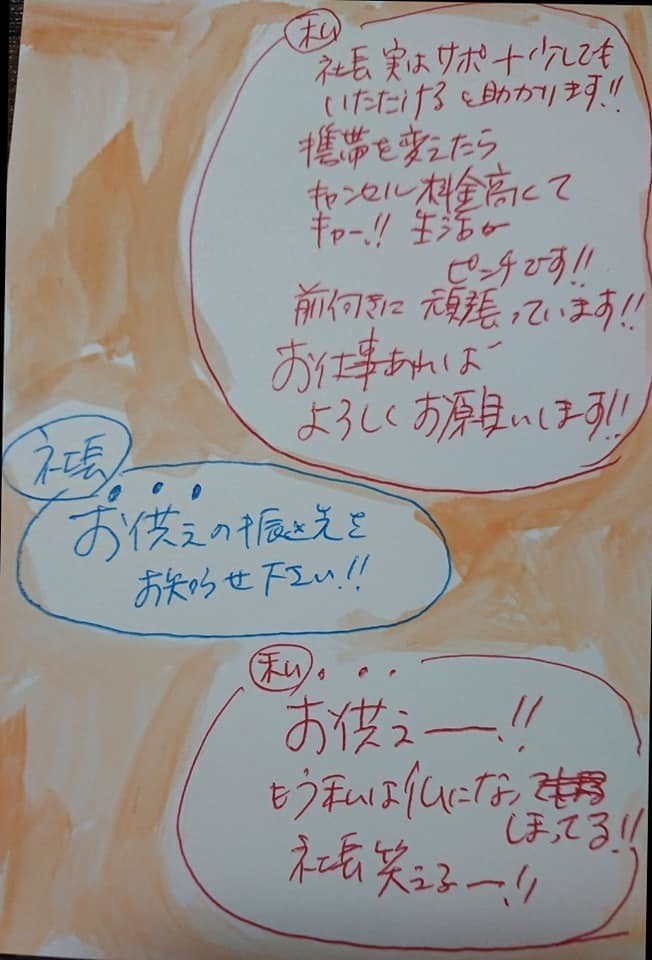 私
社長 実はサポート少しでも
いただけると助かります!!
携帯を変えたら
キャンセル料金高くて
キャー!! 生活が
ピンチです!!
前向きに 頑張っています!!
お仕事あれば
よろしくお願いします!!
社長
お供えの振込先を
お知らせ下さい!!
私
お供えー!!
もう私は仏になって
しまってる!!
社長笑えるー!!